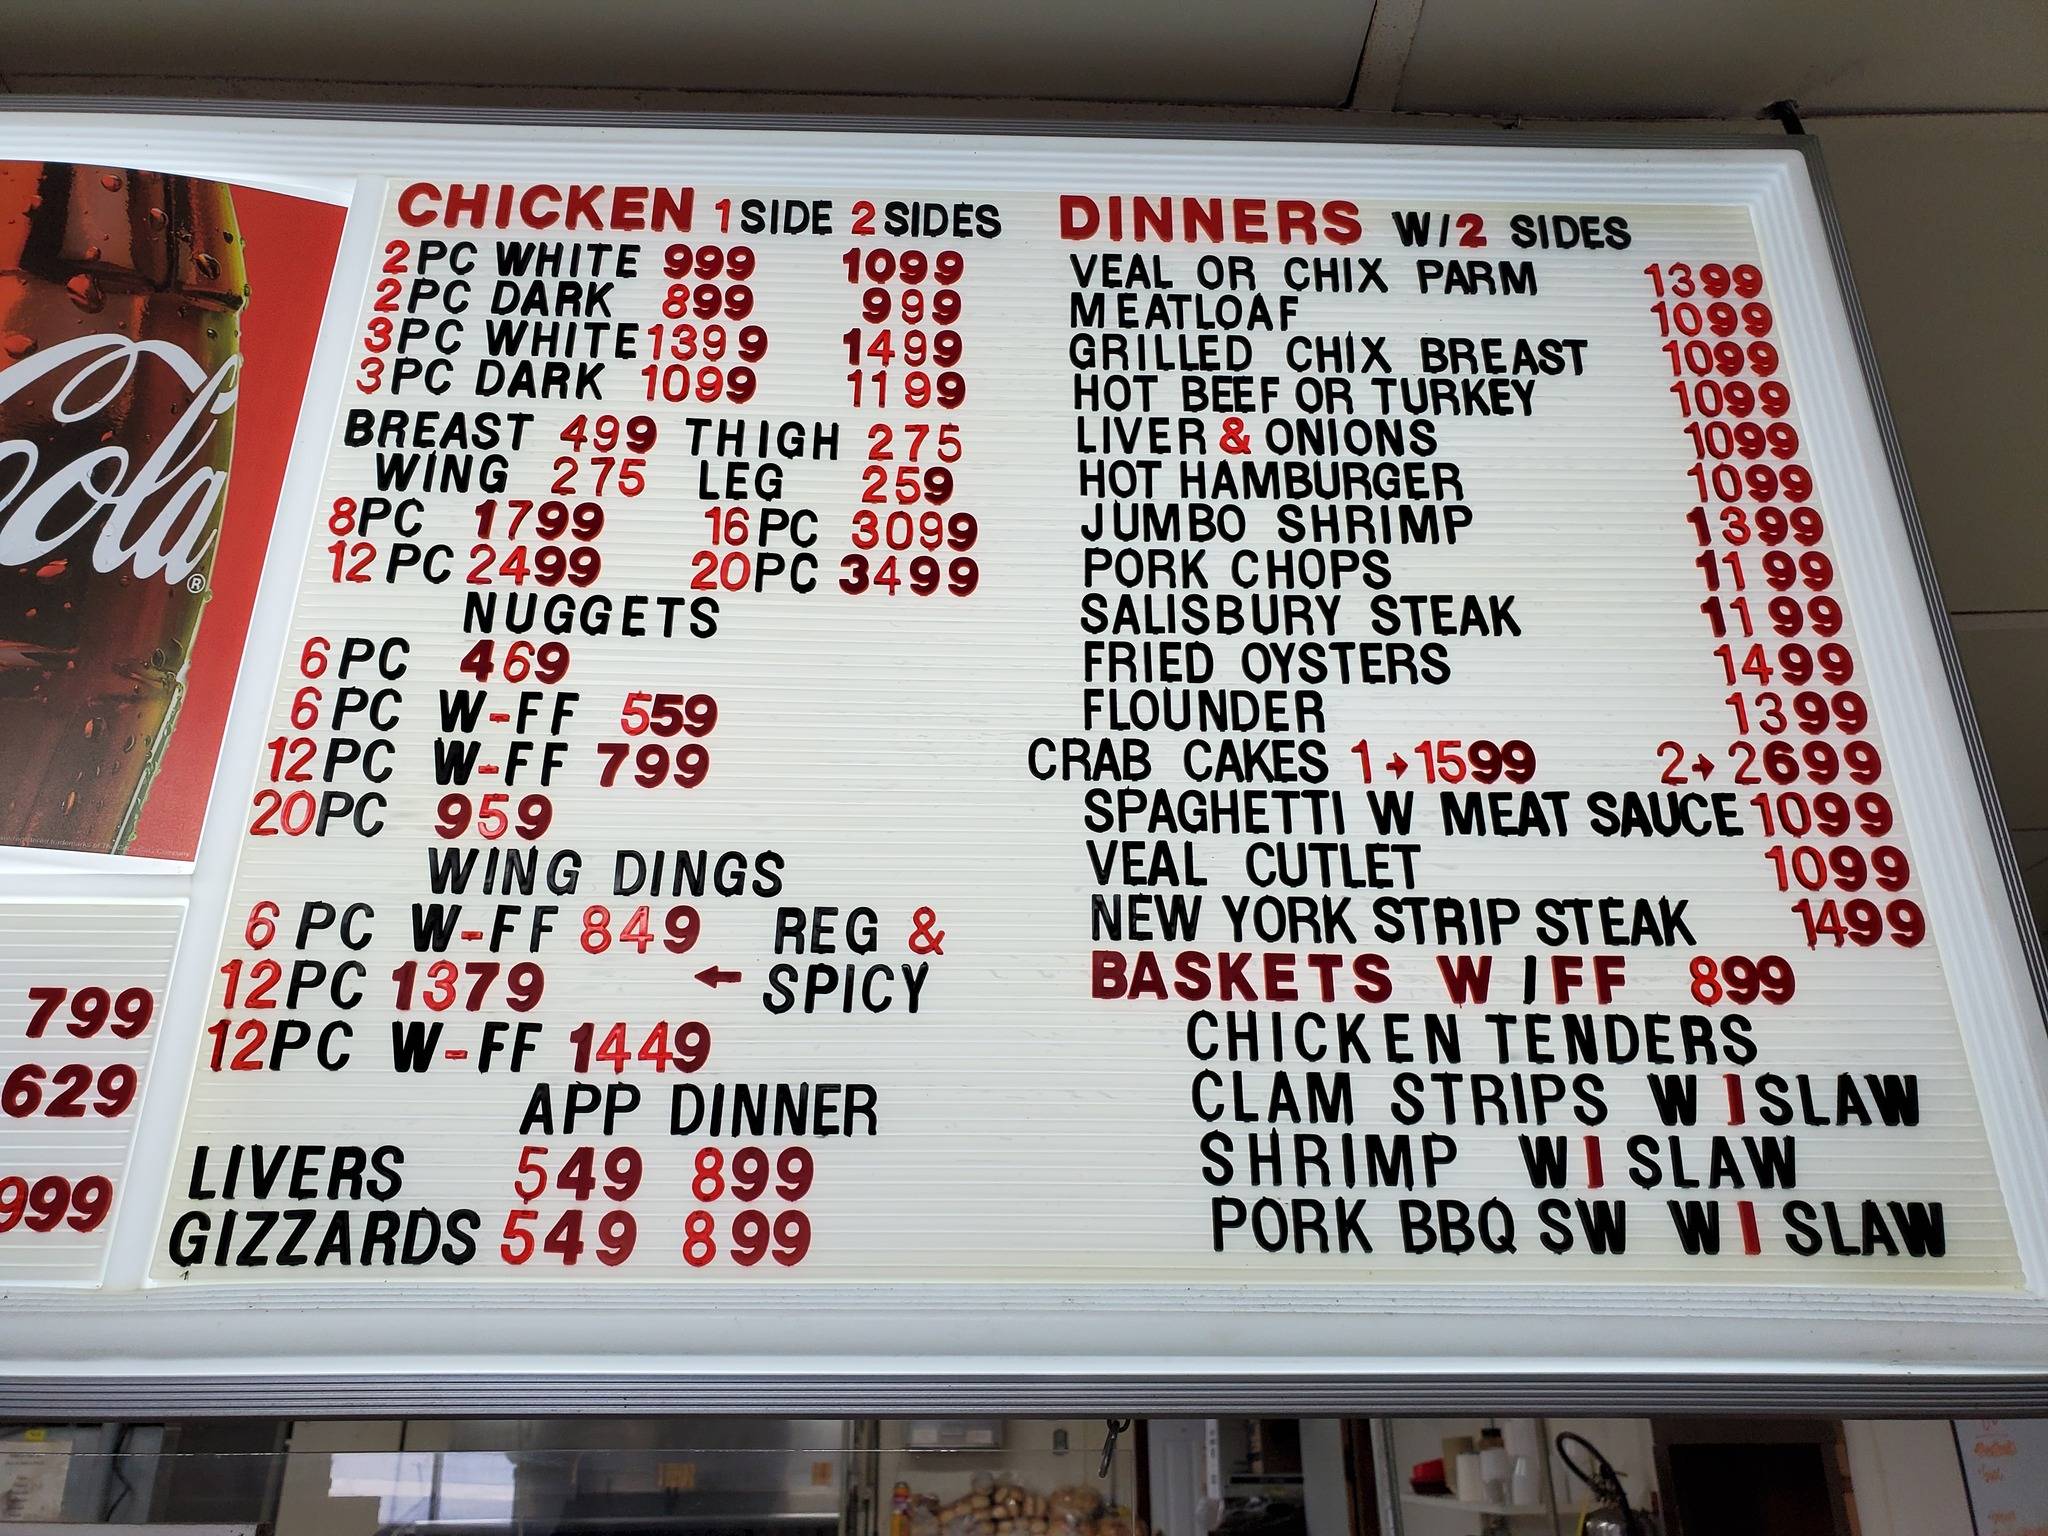 Cola®
799
629
999
CHICKEN 1 SIDE 2 SIDES
2 PC WHITE 999 1099
2 PC DARK 899 999
3 PC WHITE 1399 1499
3 PC DARK 1099 1199
BREAST 499 THIGH 275
WING 275 LEG 259
8PC 1799 16 PC 3099
12 PC 2499 20 PC 3499
NUGGETS
6 PC 469
6 PC W-FF 559
12 PC W-FF 799
20 PC 959
WING DINGS
6 PC W-FF 849 REG &
12 PC 1379 ← SPICY
12 PC W-FF 1449
APP DINNER
LIVERS 549 899
GIZZARDS 549 899
DINNERS W/2 SIDES
VEAL OR CHIX PARM 1399
MEATLOAF 1099
GRILLED CHIX BREAST 1099
HOT BEEF OR TURKEY 1099
LIVER & ONIONS 1099
HOT HAMBURGER 1099
JUMBO SHRIMP 1399
PORK CHOPS 1199
SALISBURY STEAK 1199
FRIED OYSTERS 1499
FLOUNDER 1399
CRAB CAKES 1→1599 2→2699
SPAGHETTI W MEAT SAUCE 1099
VEAL CUTLET 1099
NEW YORK STRIP STEAK 1499
BASKETS W I FF 899
CHICKEN TENDERS
CLAM STRIPS W I SLAW
SHRIMP W I SLAW
PORK BBQ SW W I SLAW